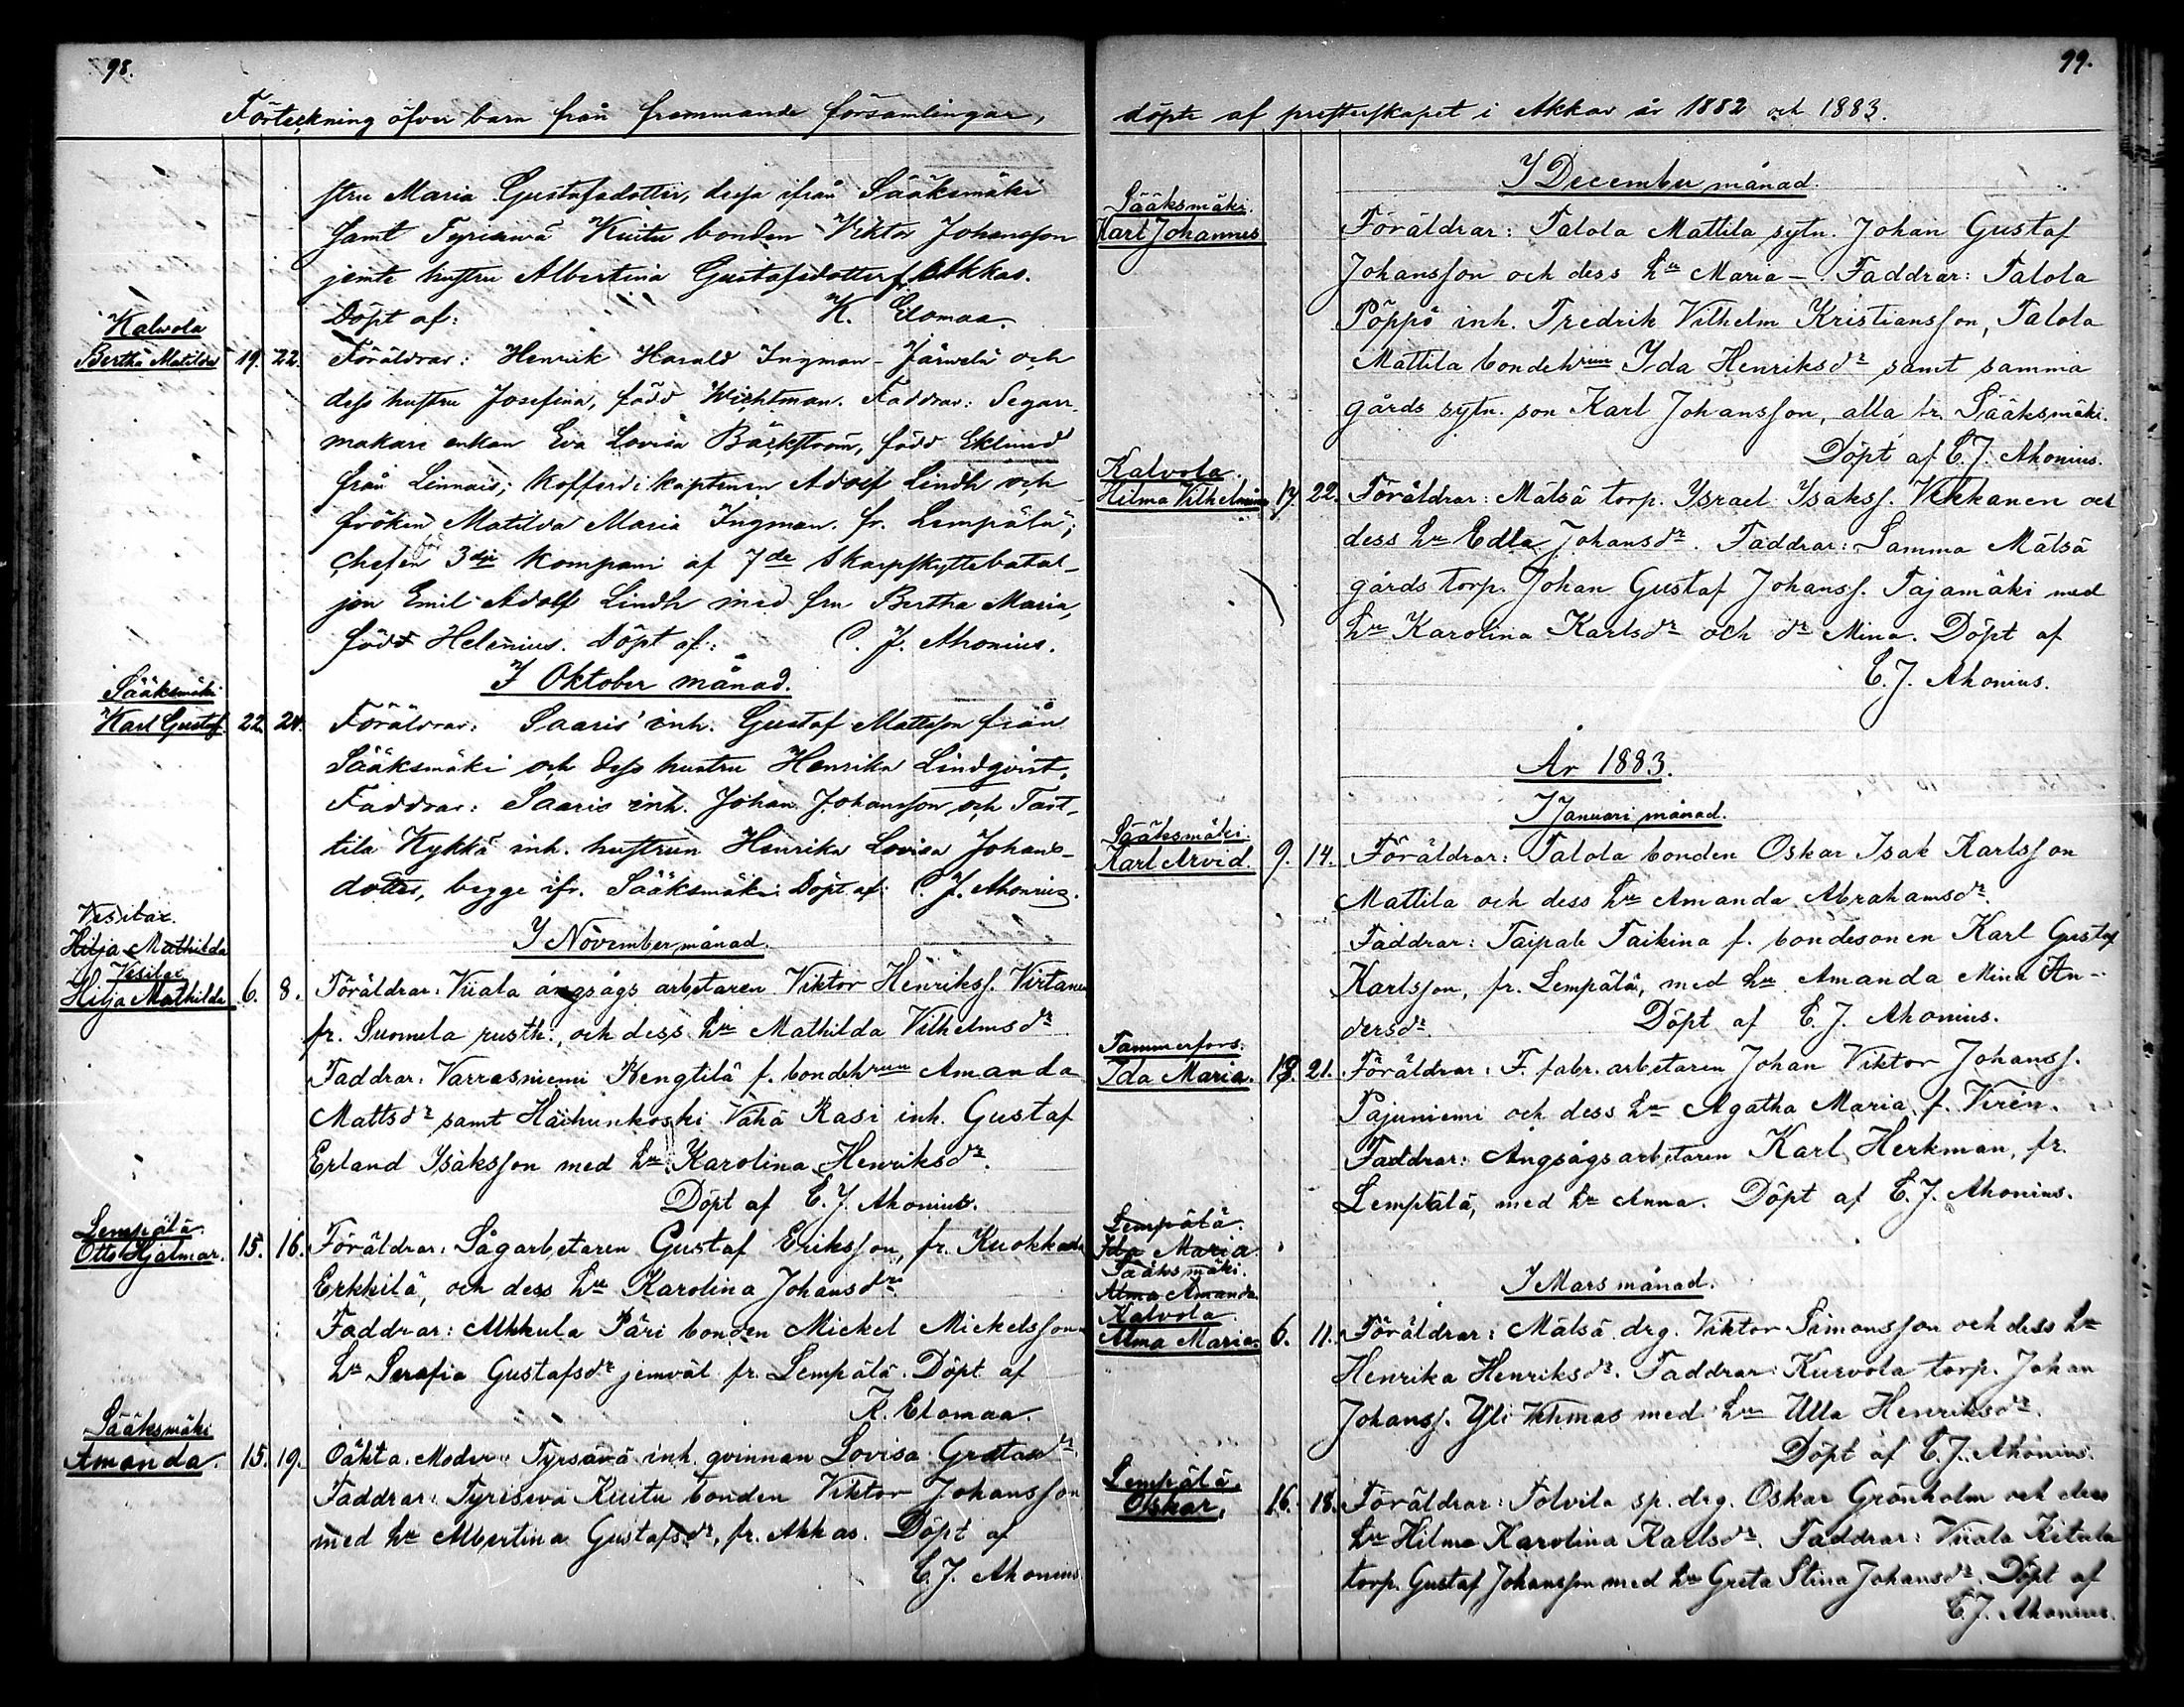 98.
Förteckning öfver barn från främmande församlingar,
stru Maria Gustafsdotter, dessa ifrån Sääksmäki
samt Tyrisevä Kuitu bonden Viktor Johansson
jemte hustru Albertina Gustafsdotter fr. Akkas.
Döpt af: K. Elomaa.
Kalvola
Bertha Matilda 19. 22. Föräldrar: Henrik Harald Ingman-Järvelä och
dess hustru Josefina, född Wichtman. Faddrar: Segarr-
makari enkan Eva Lovisa Bäckström, född Eklund
från Linnais; kofferdi kaptenen Adolf Lindh och
fröken Matilda Maria Ingman fr. Lempälä;
chefen för 3dje kompani af 7de Skarpskyttebatal-
jon Emil Adolf Lindh med fru Bertha Maria,
född Helenius. Döpt af: C. J. Ahonius.
I Oktober månad.
Sääksmäki
Karl Gustaf. 22. 24. Föräldrar: Saaris inh. Gustaf Mattsson från
Sääksmäki och dess hustru Henrika Lindqvist.
Faddrar: Saaris inh. Johan Johansson och Tart-
tila Kykkä inh. hustrun Henrika Lovisa Johans-
dotter, begge ifr. Sääksmäki. Döpt af: C. J. Ahonius.
I November månad.
Vesilax.
Hilja Mathilda
Vesilax
Hilja Mathilda 6. 8. Föräldrar: Viiala ångsågs arbetaren Viktor Henrikss. Virtanen
fr. Suomela rusth., och dess hu Mathilda Vilhelmsdr
Faddrar: Varrasniemi Kengtilä f. bondehrun Amanda
Mattsdr samt Häihunkoski Vähä Rasi inh. Gustaf
Erland Isaksson med hu Karolina Henriksdr.
Döpt af C. J. Ahonius.
Lempälä.
Otto Hjalmar. 15. 16. Föräldrar: Sågarbetaren Gustaf Eriksson, fr. Kuokkala
Erkkilä, och dess hu Karolina Johansdr.
Faddrar: Alkkula Päri bonden Mickel Mickelsson
hu Serafia Gustafsdr jemväl fr. Lempälä. Döpt af
K. Elomaa.
Sääksmäki
Amanda. 15. 19. Oäkta. Moder: Tyrsävä inh. qvinnan Lovisa
Faddrar: Tyrisevä Kuitu bonden Viktor Johansson
med hu Albertina Gustafsdr, fr. Akkas. Döpt af
C. J. Ahonius
99.
döpte af presterskapet i Akkas år 1882 och 1883.
I December månad.
Sääksmäki.
Karl Johannes Föräldrar: Talola Mattila sytn. Johan Gustaf
Johansson och dess hu Maria –. Faddrar: Talola
Pöppö inh. Fredrik Vilhelm Kristiansson, Talola
Mattila bondehrun Ida Henriksdr samt samma
gårds sytn. son Karl Johansson, alla fr. Sääksmäki.
Döpt af C. J. Ahonius.
Kalvola.
Hilma Vilhelmina 17. 22. Föräldrar: Mälsä torp. Israel Isakss. Vekkanen och
dess hu Edla Johansdr. Faddrar: Samma Mälsä
gårds torp. Johan Gustaf Johanss. Tajamäki med
hu Karolina Karlsdr och dr Mina. Döpt af
C. J. Ahonius.
År 1883.
I Januari månad.
Sääksmäki.
Karl Arvid. 9. 14. Föräldrar: Talola bonden Oskar Isak Karlsson
Mattila och dess hu Amanda Abrahamsdr.
Faddrar: Taipale Taikina f. bondesonen Karl Gustaf
Karlsson, fr. Lempälä, med hu Amanda Mina An-
dersdr. Döpt af C. J. Ahonius.
Tammerfors.
Ida Maria. 13. 21. Föräldrar: F. fabr. arbetaren Johan Viktor Johanss.
Pajuniemi och dess hu Agatha Maria f. Virén.
Faddrar: Ångsågsarbetaren Karl Herkman, fr.
Lempälä, med hu Anna. Döpt af C. J. Ahonius.
Lempälä.
Ida Maria.
Sääksmäki.
Alma Amanda.
I Mars månad.
Kalvola.
Alma Maria. 6. 11. Föräldrar: Mälsä drg. Viktor Simonsson och dess hu
Henrika Henriksdr. Faddrar: Kurvola torp. Johan
Johanss. Yli Vehmas med hu Ulla Henriksdr.
Döpt af C. J. Ahonius.
Lempälä.
Oskar, 16. 18. Föräldrar: Tolvila sp. drg. Oskar Grönholm och dess
hu Hilma Karolina Karlsdr. Faddrar: Viiala Kitula
torp. Gustaf Johansson med hu Greta Stina Johansdr. Döpt af
C. J. Ahonius.